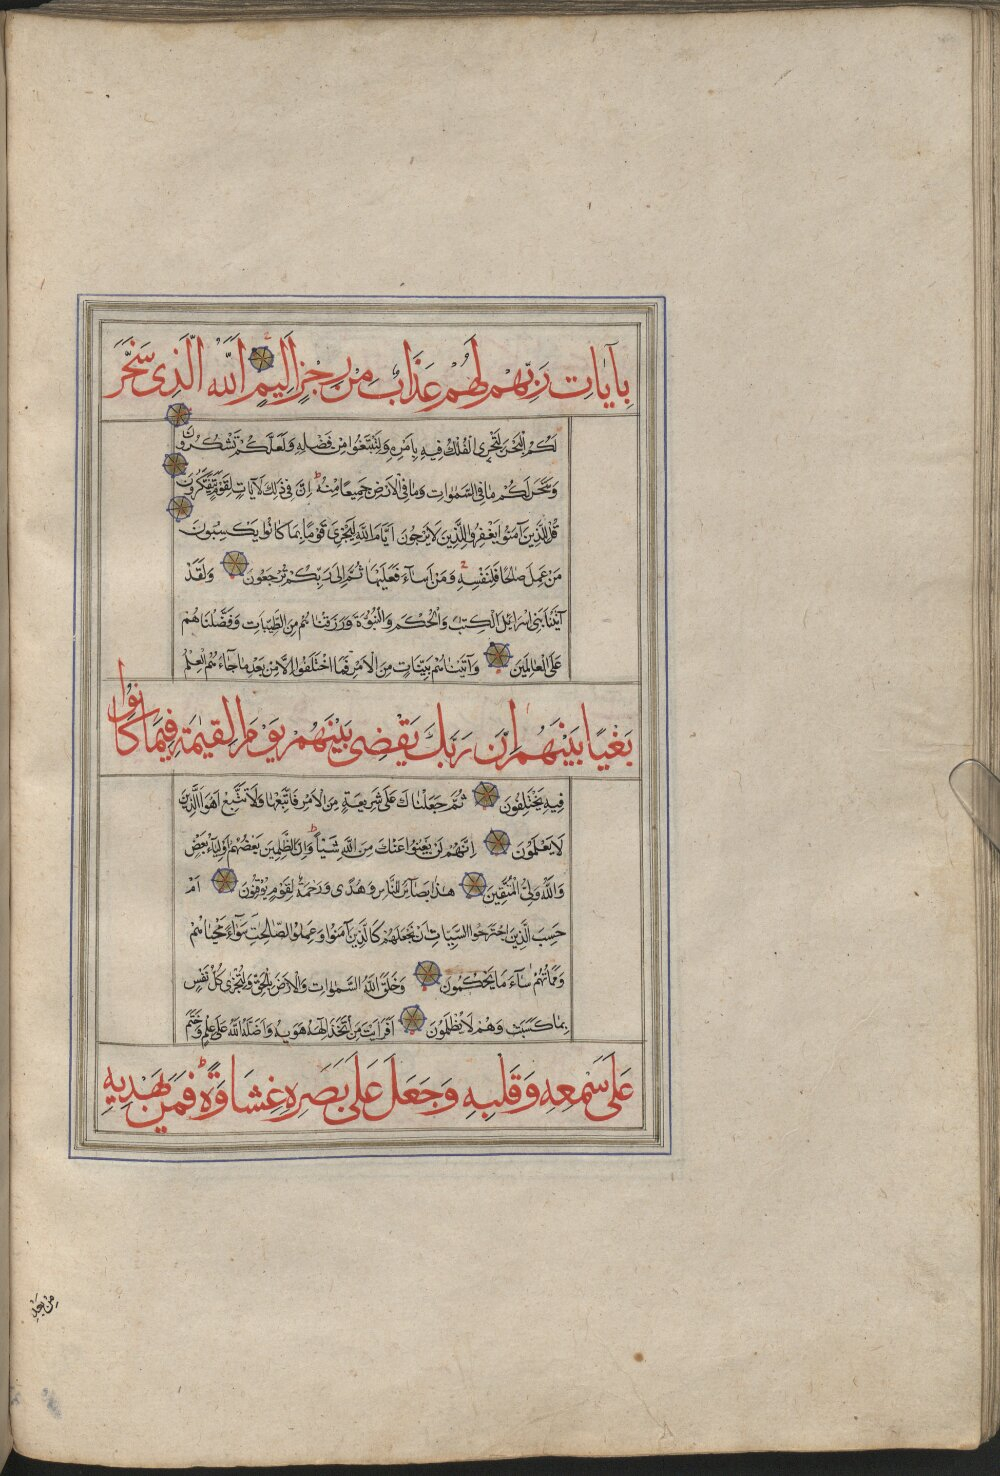 بِاٰيَاتِ رَبِّهِمْ لَهُمْ عَذَابٌ مِنْ رِجْزٍ اَلِيمٍ اَللّٰهُ الَّذِى سَخَّرَ
لَكُمُ الْبَحْرَ لِتَجْرِىَ الْفُلْكُ فِيهِ بِاَمْرِهِ وَلِتَبْتَغُوا مِنْ فَضْلِهِ وَلَعَلَّكُمْ تَشْكُرُونَ
وَسَخَّرَ لَكُمْ مَا فِى السَّمٰوَاتِ وَمَا فِى الْاَرْضِ جَمِيعًا مِنْهُ ط اِنَّ فِى ذٰلِكَ لَاٰيَاتٍ لِقَوْمٍ يَتَفَكَّرُونَ
قُلْ لِلَّذِينَ اٰمَنُوا يَغْفِرُوا لِلَّذِينَ لَا يَرْجُونَ اَيَّامَ اللّٰهِ لِيَجْزِىَ قَوْمًا بِمَا كَانُوا يَكْسِبُونَ
مَنْ عَمِلَ صَالِحًا فَلِنَفْسِهِ وَمَنْ اَسَاءَ فَعَلَيْهَا ثُمَّ اِلَى رَبِّكُمْ تُرْجَعُونَ وَلَقَدْ
اٰتَيْنَا بَنِى اِسْرَائِيلَ الْكِتٰبَ وَالْحُكْمَ وَالنُّبُوَّةَ وَرَزَقْنَاهُمْ مِنَ الطَّيِّبَاتِ وَفَضَّلْنَاهُمْ
عَلَى الْعَالَمِينَ وَاٰتَيْنَاهُمْ بَيِّنَاتٍ مِنَ الْاَمْرِ فَمَا اخْتَلَفُوا اِلَّا مِنْ بَعْدِ مَا جَاءَهُمُ الْعِلْمُ
بَغْيًا بَيْنَهُمْ اِنَّ رَبَّكَ يَقْضِى بَيْنَهُمْ يَوْمَ الْقِيٰمَةِ فِيمَا كَانُوا
فِيهِ يَخْتَلِفُونَ ثُمَّ جَعَلْنَاكَ عَلَى شَرِيعَةٍ مِنَ الْاَمْرِ فَاتَّبِعْهَا وَلَا تَتَّبِعْ اَهْوَاءَ الَّذِينَ
لَا يَعْلَمُونَ اِنَّهُمْ لَنْ يُغْنُوا عَنْكَ مِنَ اللّٰهِ شَيْئًا ط وَاِنَّ الظّٰلِمِينَ بَعْضُهُمْ اَوْلِيَاءُ بَعْضٍ
وَاللّٰهُ وَلِىُّ الْمُتَّقِينَ هٰذَا بَصَائِرُ لِلنَّاسِ وَهُدًى وَرَحْمَةٌ لِقَوْمٍ يُوقِنُونَ اَمْ
حَسِبَ الَّذِينَ اجْتَرَحُوا السَّيِّئَاتِ اَنْ نَجْعَلَهُمْ كَالَّذِينَ اٰمَنُوا وَعَمِلُوا الصَّالِحٰتِ سَوَاءً مَحْيَاهُمْ
وَمَمَاتُهُمْ سَاءَ مَا يَحْكُمُونَ وَخَلَقَ اللّٰهُ السَّمٰوَاتِ وَالْاَرْضَ بِالْحَقِّ وَلِتُجْزَى كُلُّ نَفْسٍ
بِمَا كَسَبَتْ وَهُمْ لَا يُظْلَمُونَ اَفَرَاَيْتَ مَنِ اتَّخَذَ اِلٰهَهُ هَوٰيهُ وَاَضَلَّهُ اللّٰهُ عَلَى عِلْمٍ وَخَتَمَ
عَلَى سَمْعِهِ وَقَلْبِهِ وَجَعَلَ عَلَى بَصَرِهِ غِشَاوَةً ط فَمَنْ يَهْدِيهِ
مِنْ بَعْدِ